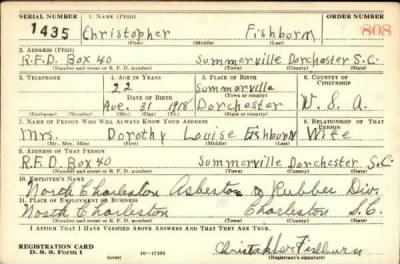 SERIAL NUMBER 1. NAME (Print) ORDER NUMBER
1435 Christopher Fishburn 808
(First) (Middle) (Last)
2. ADDRESS (Print)
R.F.D. Box 40 Summerville Dorchester S.C.
(Number and street or R. F. D. number) (Town) (County) (State)
3. TELEPHONE 4. AGE IN YEARS 5. PLACE OF BIRTH 6. COUNTRY OF CITIZENSHIP
22 Summerville
DATE OF BIRTH (Town or county)
Aug. 31 1918 Dorchester U. S. A.
(Exchange) (Number) (Mo.) (Day) (Yr.) (State or country)
7. NAME OF PERSON WHO WILL ALWAYS KNOW YOUR ADDRESS 8. RELATIONSHIP OF THAT PERSON
Mrs. Dorothy Louise Fishburn Wife
(Mr., Mrs., Miss) (First) (Middle) (Last)
9. ADDRESS OF THAT PERSON
R.F.D. Box 40 Summerville Dorchester S.C.
(Number and street or R. F. D. number) (Town) (County) (State)
10. EMPLOYER'S NAME
North Charleston Asbestos & Rubber Div.
11. PLACE OF EMPLOYMENT OR BUSINESS
North Charleston Charleston S.C.
(Number and street or R. F. D. number) (Town) (County) (State)
I AFFIRM THAT I HAVE VERIFIED ABOVE ANSWERS AND THAT THEY ARE TRUE.
REGISTRATION CARD
D. S. S. Form 1 (over) Christopher Fishburn
(Registrant's signature)